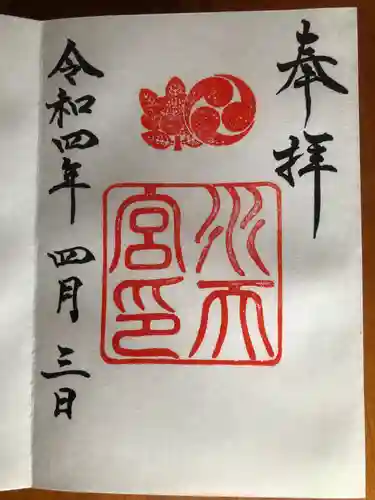 奉拝
水天宮印
令和四年 四月 三日